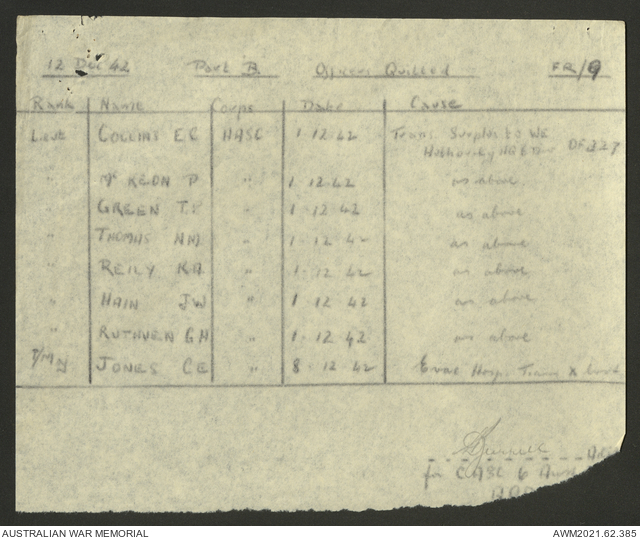 12 Dec 42 Part B Officers Quitted FR/9
Rank Name Corps Date Cause
Lieut COLLINS E C AASC 1.12.42 Trans. Surplus to WE
Authority HQ 6 Div
" Mc KEON P " 1.12.42 as above
" GREEN T.P " 1.12.42 as above
" THOMAS " 1.12.42 as above
" REILY RA " 1.12.42 as above
" HAIN JW " 1.12.42 as above
" RUTHVEN GH " 1.12.42 as above
T/Maj JONES CE " 8.12.42 Evac Hosp. Trans X List
for CASC 6 Aust
AUSTRALIAN WAR MEMORIAL AWM2021.62.385